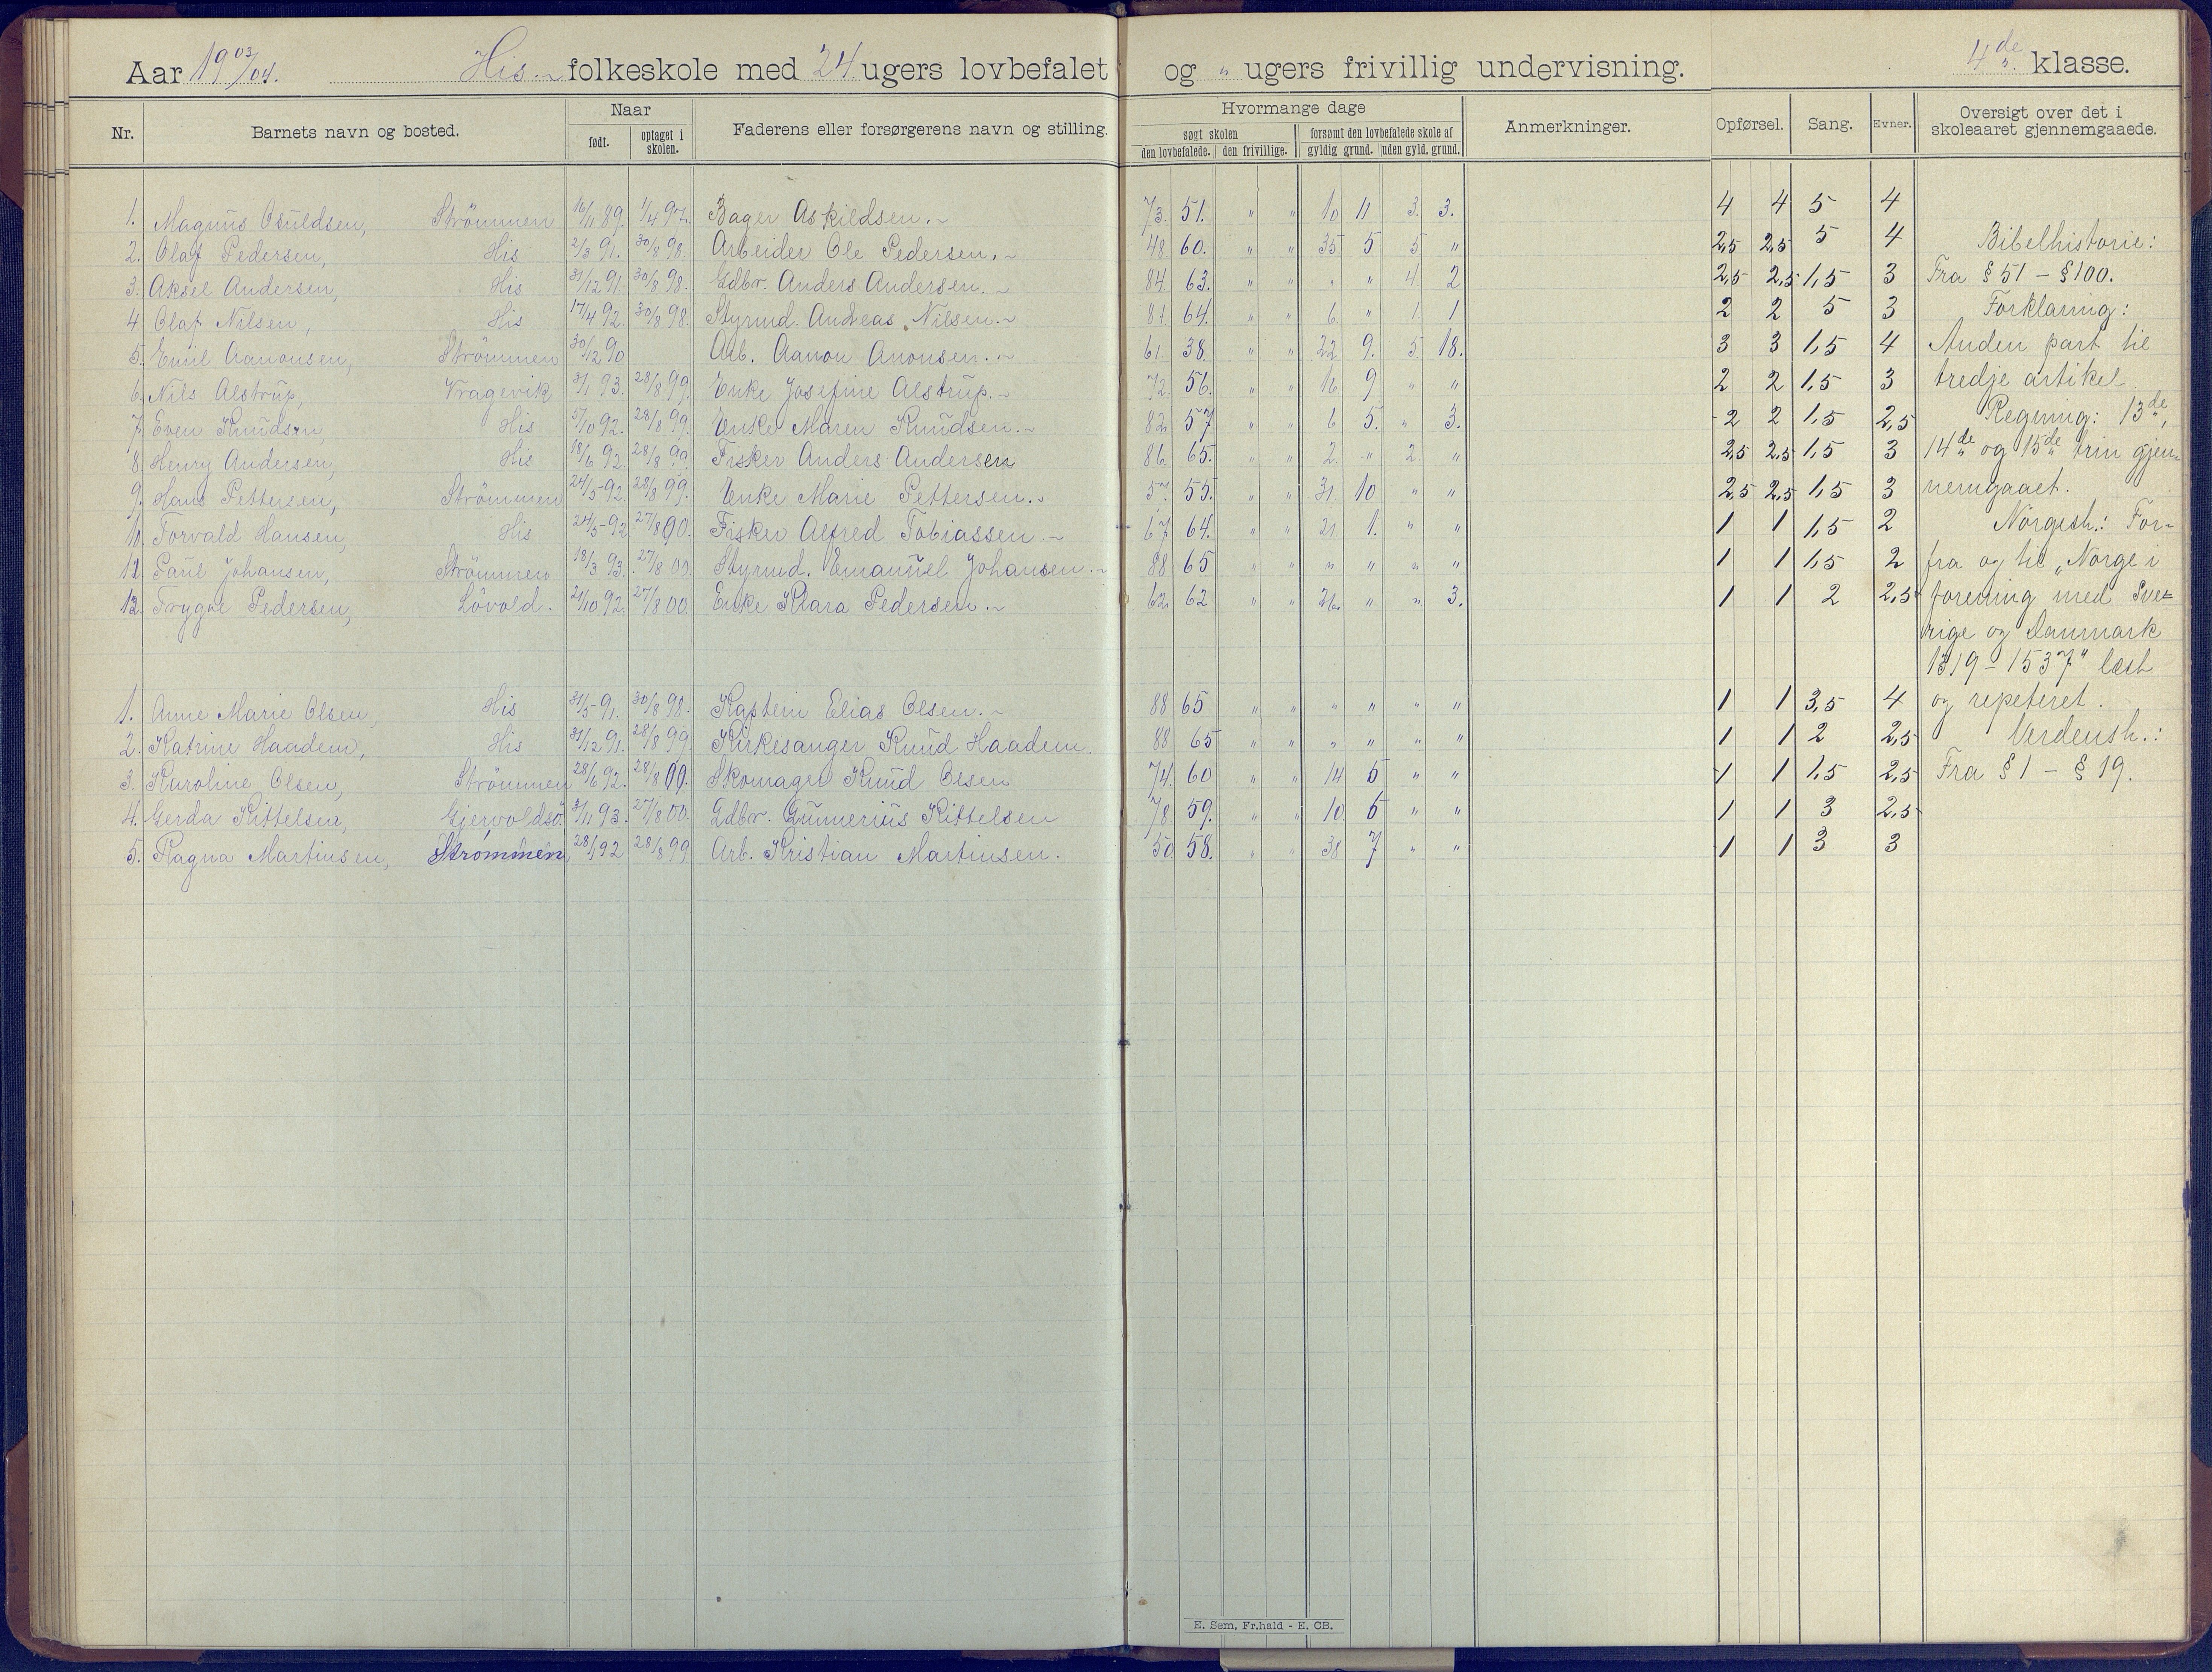 Aar 19 03/04. His folkeskole med 24 ugers lovbefalet og " ugers frivillig undervisning. 4de klasse.
Nr. Barnets navn og bosted. Naar født. optaget i skolen. Faderens eller forsørgerens navn og stilling. Hvormange dage søgt skolen den lovbefalede. den frivillige. forsømt den lovbefalede skole af gyldig grund. uden gyld. grund. Anmerkninger. Opførsel. Sang. Evner. Oversigt over det i skoleaaret gjennemgaaede.
1. Magnus Osuldsen, Strömmen 16/11 89. 1/4 97. Bager Askildsen. 73. 51. " " 10 11 3. 3. 4 4 5 4
2. Olaf Pedersen, His 2/3 91. 30/8 98. Arbeider Ole Pedersen. 48 60. " " 35 5 5 " 2,5 2,5 5 4 Bibelhistorie:
3. Aksel Andersen, His 31/12 91. 30/8 98. Gdbr. Anders Andersen. 84 63. " " " " 4 2 2,5 2,5 1,5 3 Fra § 51 - § 100.
4. Olaf Nilsen, His 17/4 92. 30/8 98. Styrmd. Andreas Nilsen. 81 64. " " 6 " 1 1 2 2 5 3 Forklaring:
5. Emil Aanonsen, Strömmen 30/12 90 Arb. Aanon Anonsen. 61. 38. " " 22 9. 5 18. 3 3 1,5 4 Anden part til
6. Nils Alstrup, Vragevik 3/1 93. 28/8 99. Enke Josefine Alstrup. 72. 56. " " 16 9 " " 2 2 1,5 3 tredje artikel.
7. Even Knudsen His 5/10 92. 28/8 99. Enke Maren Knudsen. 82 57 " " 6 5. " 3. 2 2 1,5 2,5 Regning: 13de,
8. Henry Andersen, His 18/6 92. 28/8 99. Fisker Anders Andersen 86. 65. " " 2. " 2. " 2,5 2,5 1,5 3 14de og 15de trin gjen-
9. Hans Pettersen, Strömmen 24/5 92. 28/8 99. Enke Marie Pettersen. 57. 55. " " 31. 10 " " 2,5 2,5 1,5 3 nemgaaet.
10. Torvald Hansen, His 24/5 92. 27/8 00. Fisker Alfred Tobiassen 67 64. " " 21. 1. " " 1 1 1,5 2 Norgesh.: For-
11. Paul Johansen, Strömmen 18/3 93. 27/8 00 Styrmd. Emanuel Johansen. 88 65 " " " " " " 1 1 1,5 2 fra og til „Norge i
12. Trygve Pedersen, Lövold. 21/10 92. 27/8 00. Enke Klara Pedersen. 62. 62 " " 26. " " 3. 1 1 2 2,5 forening med Sve-
rige og Danmark
1319 - 1537" læst
1. Anne Marie Olsen, His 31/5 91. 30/8 98. Kaptein Elias Olsen. 88 65 " " " " " " 1 1 3,5 4 og repeteret.
2. Katrine Haadem, His 31/12 91. 28/8 99. Kirkesanger Knud Haadem. 88 65 " " " " " " 1 1 2 2,5 Verdensh.:
3. Karoline Olsen, Strömmen 28/6 92. 28/8 00. Skomager Knud Olsen 74. 60 " " 14 5 " " 1 1 1,5 2,5 Fra § 1 - § 19.
4. Gerda Kittelsen, Gjervoldsö. 3/11 93. 27/8 00. Gdbr. Gunnerius Kittelsen 78. 59. " " 10. 6 " " 1 1 3 2,5
5. Ragna Martinsen, Strömmen 28/1 92 28/8 99. Arb. Kristian Martinsen. 50 58. " " 38 7 " " 1 1 3 3
E. Sem, Fr.hald - E. CB.